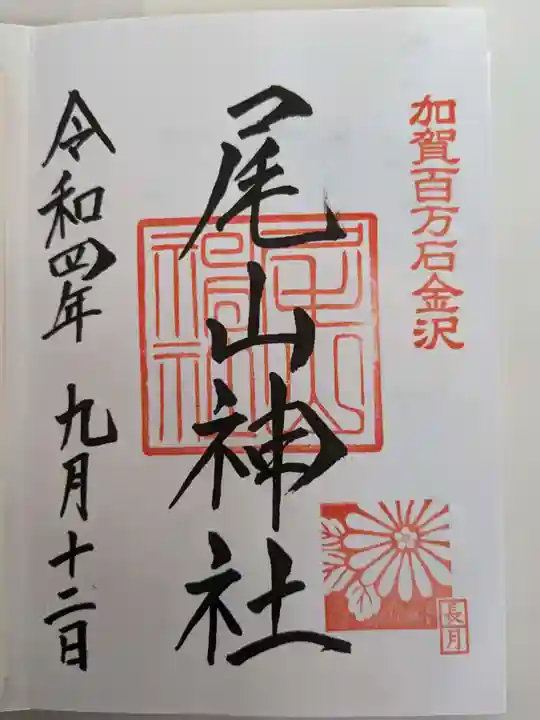 加賀百万石金沢
長月
尾山神社
尾山神社
令和四年 九月十二日